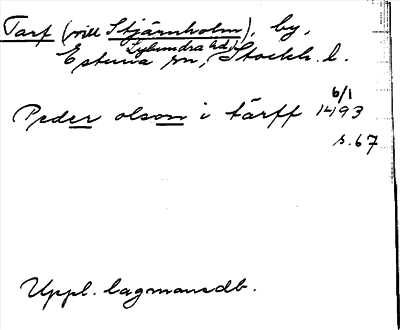 Tarf (vill Stjärnholm), by,
Lyhundra hd,
Estuna sn, Stockh. l.
6/1
Peder olson i tärff 1493
s. 67
Uppl. lagmansdb.